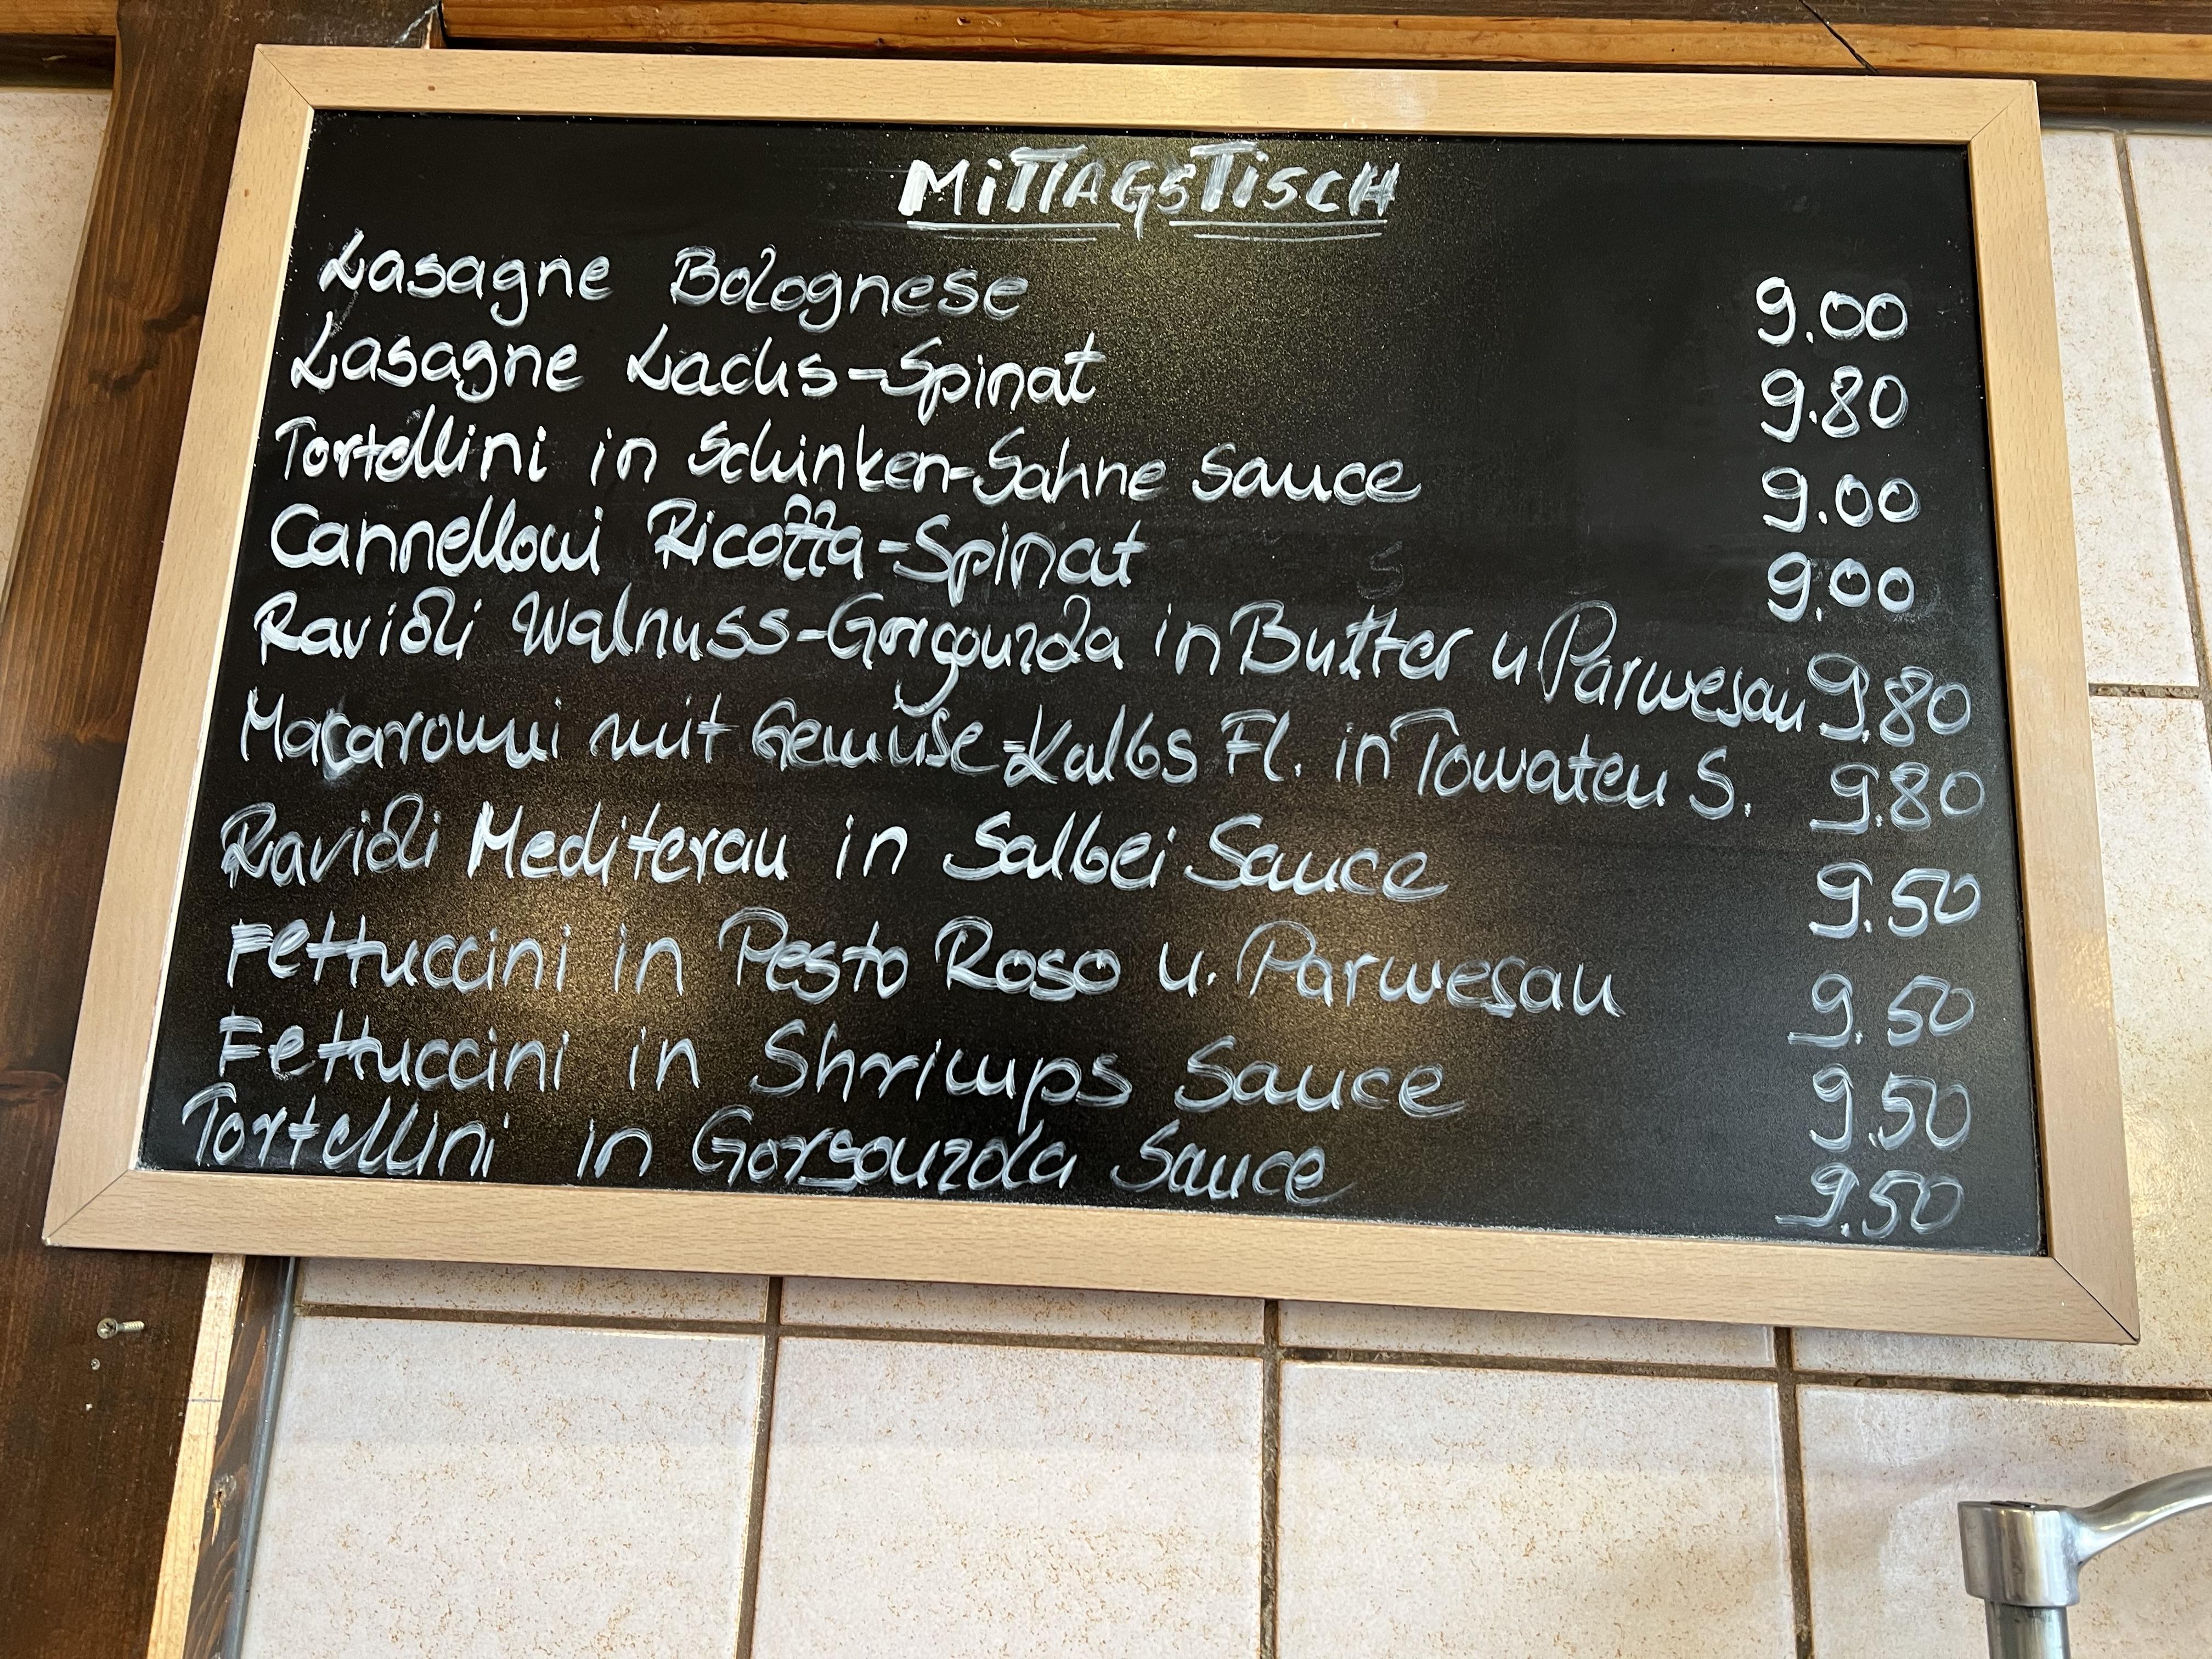 MiTTAGSTiSCH
Lasagne Bolognese 9.00
Lasagne Lachs-Spinat 9.80
Tortellini in Schinken-Sahne Sauce 9.00
Cannelloni Ricotta-Spinat 9.00
Ravioli Walnuss-Gorgonzola in Butter u Parmesan 9.80
Macaronni mit Gemüse-Kalbs Fl. in Tomaten S. 9.80
Ravioli Mediteran in Salbei Sauce 9.50
Fettuccini in Pesto Roso u. Parmesan 9.50
Fettuccini in Shrimps Sauce 9.50
Tortellini in Gorgonzola Sauce 9.50